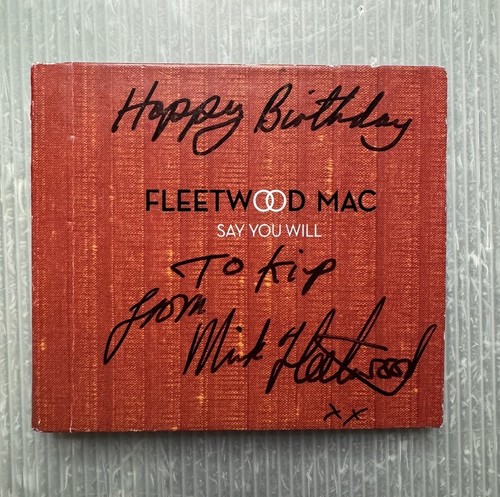 Happy Birthday
FLEETWOOD MAC
SAY YOU WILL
To Kip
from
Mick Fleetwood
xx